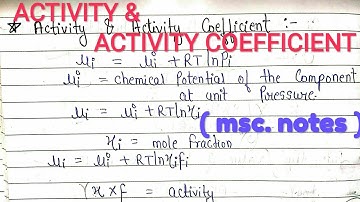 ACTIVITY &
* Activity & Activity Coefficient :-
ACTIVITY COEFFICIENT
μi = μi° + RTlnPi
μi° = chemical Potential of the Component
at unit Pressure.
μi = μi° + RTlnxi
( msc. notes )
xi = mole fraction
μi = μi° + RTlnxifi
γx × f = activity